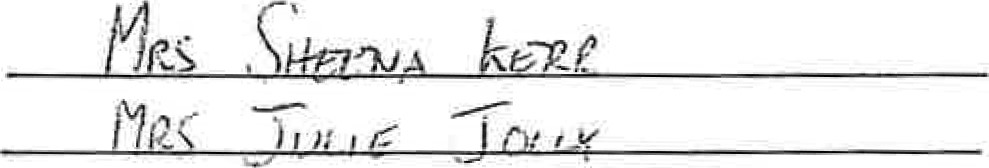 MRS SHEENA KERR
MRS JULIE JOLLY